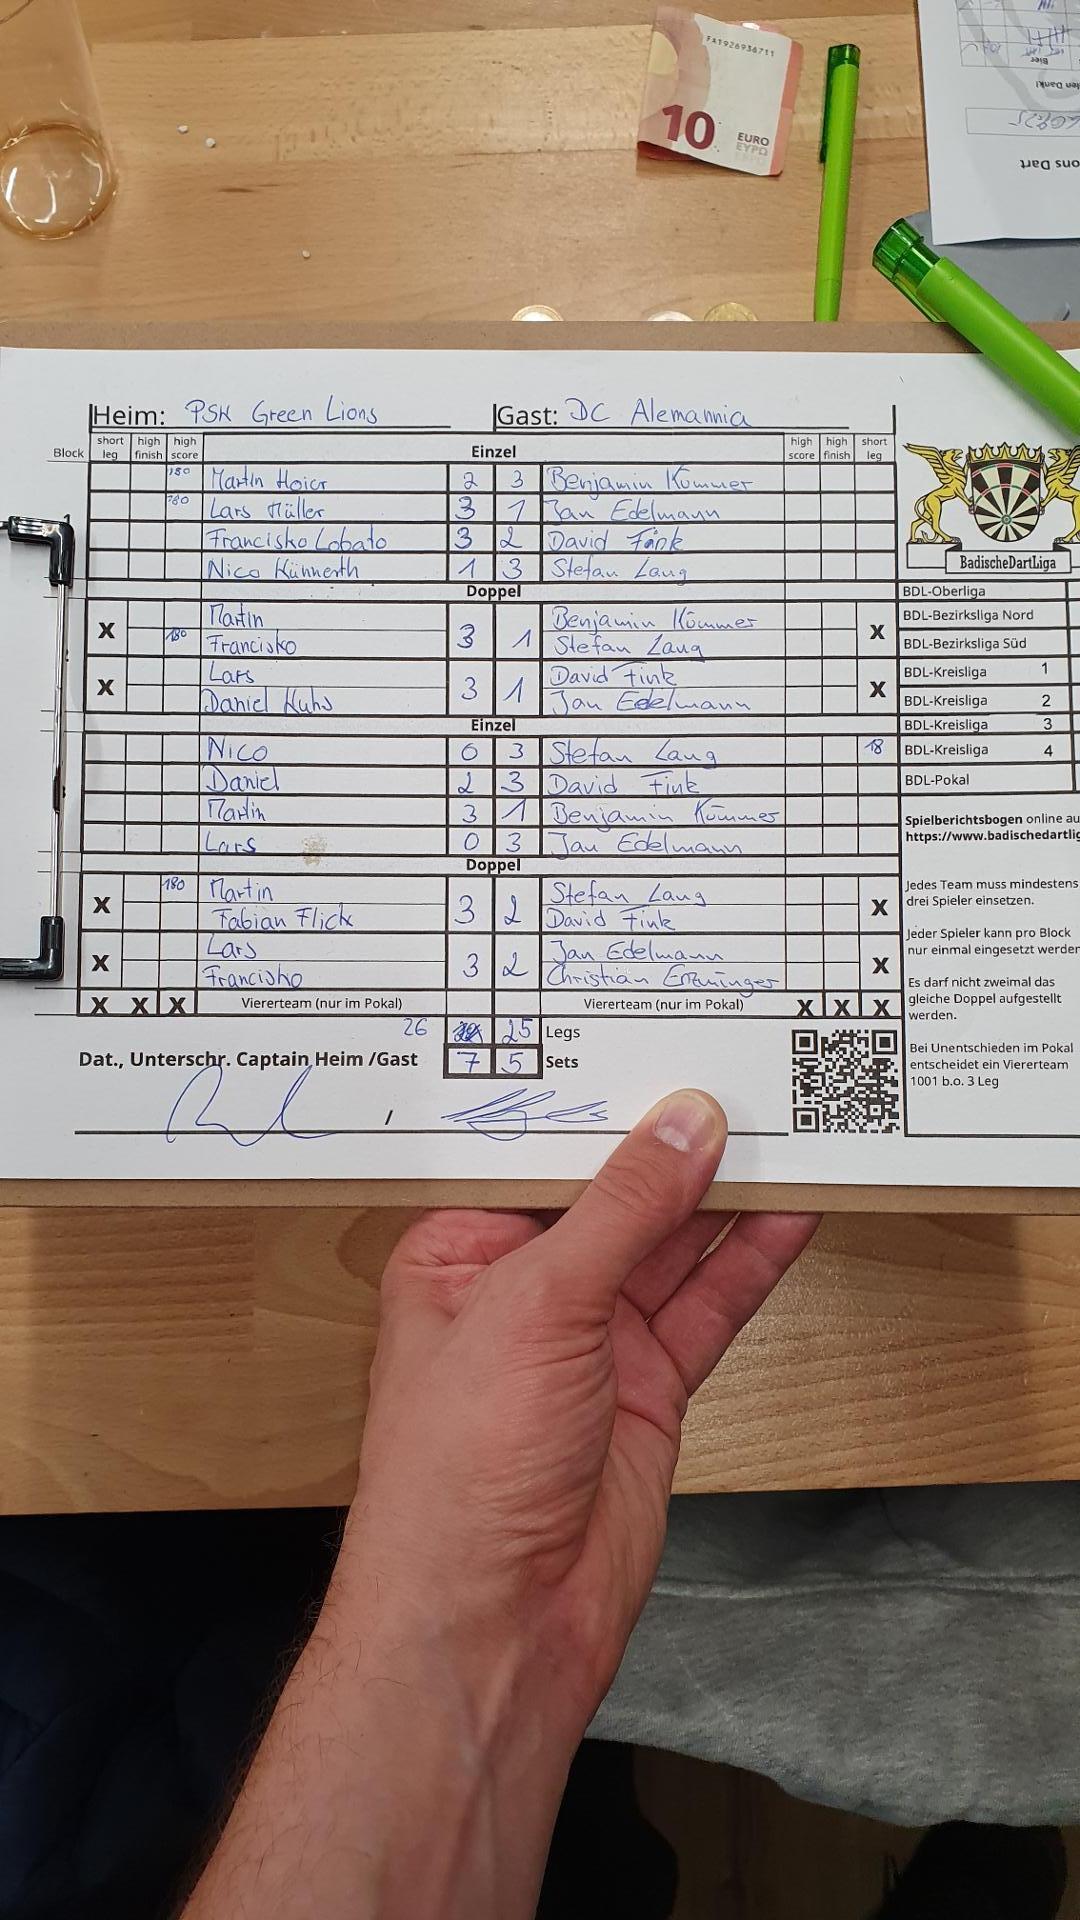 FA1926936711
10 EURO
ΕΥΡΩ
Bier
ons Dart
Heim: PSK Green Lions Gast: DC Alemannia
Block short leg high finish high score Einzel high score high finish short leg
180 Martin Hoier 2 3 Benjamin Kümmer
180 Lars Müller 3 1 Jan Edelmann
Francisko Lobato 3 2 David Fink
Nico Künnerth 1 3 Stefan Lang
Doppel
X Martin 3 1 Benjamin Kümmer X
180 Francisko Stefan Lang
X Lars 3 1 David Fink X
Daniel Kuhs Jan Edelmann
Einzel
Nico 0 3 Stefan Lang 18
Daniel 2 3 David Fink
Martin 3 1 Benjamin Kümmer
Lars 0 3 Jan Edelmann
Doppel
X 180 Martin 3 2 Stefan Lang X
Fabian Flick David Fink
X Lars 3 2 Jan Edelmann X
Francisko Christian
X X X Viererteam (nur im Pokal) Viererteam (nur im Pokal) X X X
26 25 Legs
Dat., Unterschr. Captain Heim /Gast 7 5 Sets
/
BadischeDartLiga
BDL-Oberliga
BDL-Bezirksliga Nord
BDL-Bezirksliga Süd
BDL-Kreisliga 1
BDL-Kreisliga 2
BDL-Kreisliga 3
BDL-Kreisliga 4
BDL-Pokal
Spielberichtsbogen online au
https://www.badischedartlig
Jedes Team muss mindestens
drei Spieler einsetzen.
Jeder Spieler kann pro Block
nur einmal eingesetzt werden
Es darf nicht zweimal das
gleiche Doppel aufgestellt
werden.
Bei Unentschieden im Pokal
entscheidet ein Viererteam
1001 b.o. 3 Leg